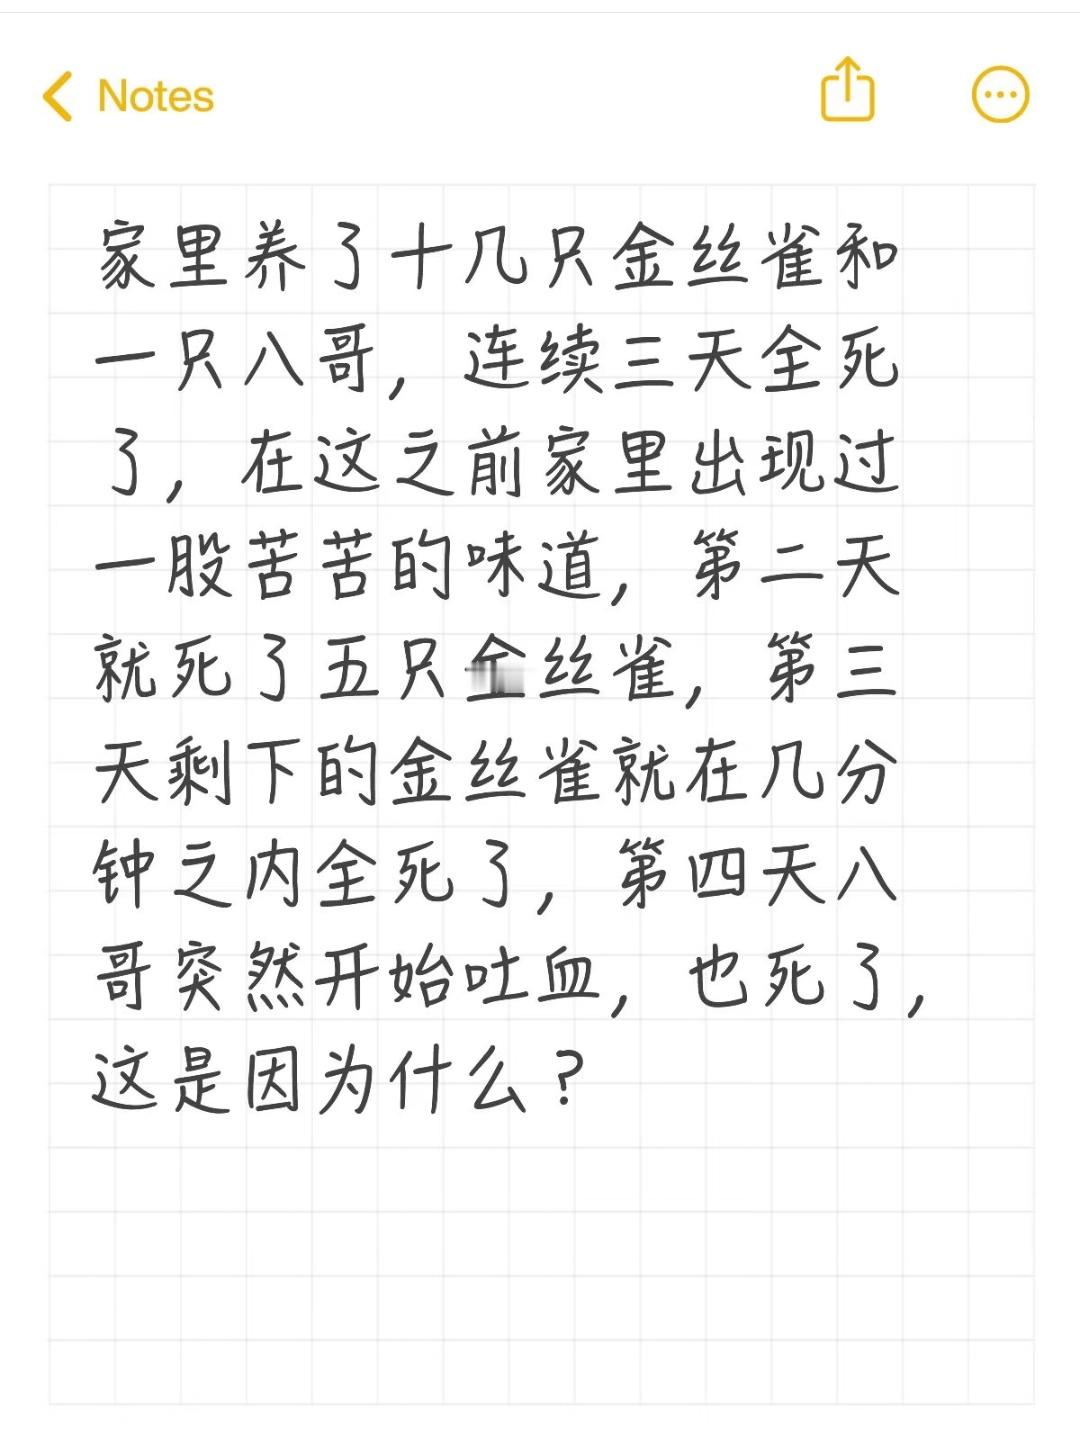 Notes
家里养了十几只金丝雀和
一只八哥，连续三天全死
了，在这之前家里出现过
一股苦苦的味道，第二天
就死了五只金丝雀，第三
天剩下的金丝雀就在几分
钟之内全死了，第四天八
哥突然开始吐血，也死了，
这是因为什么？